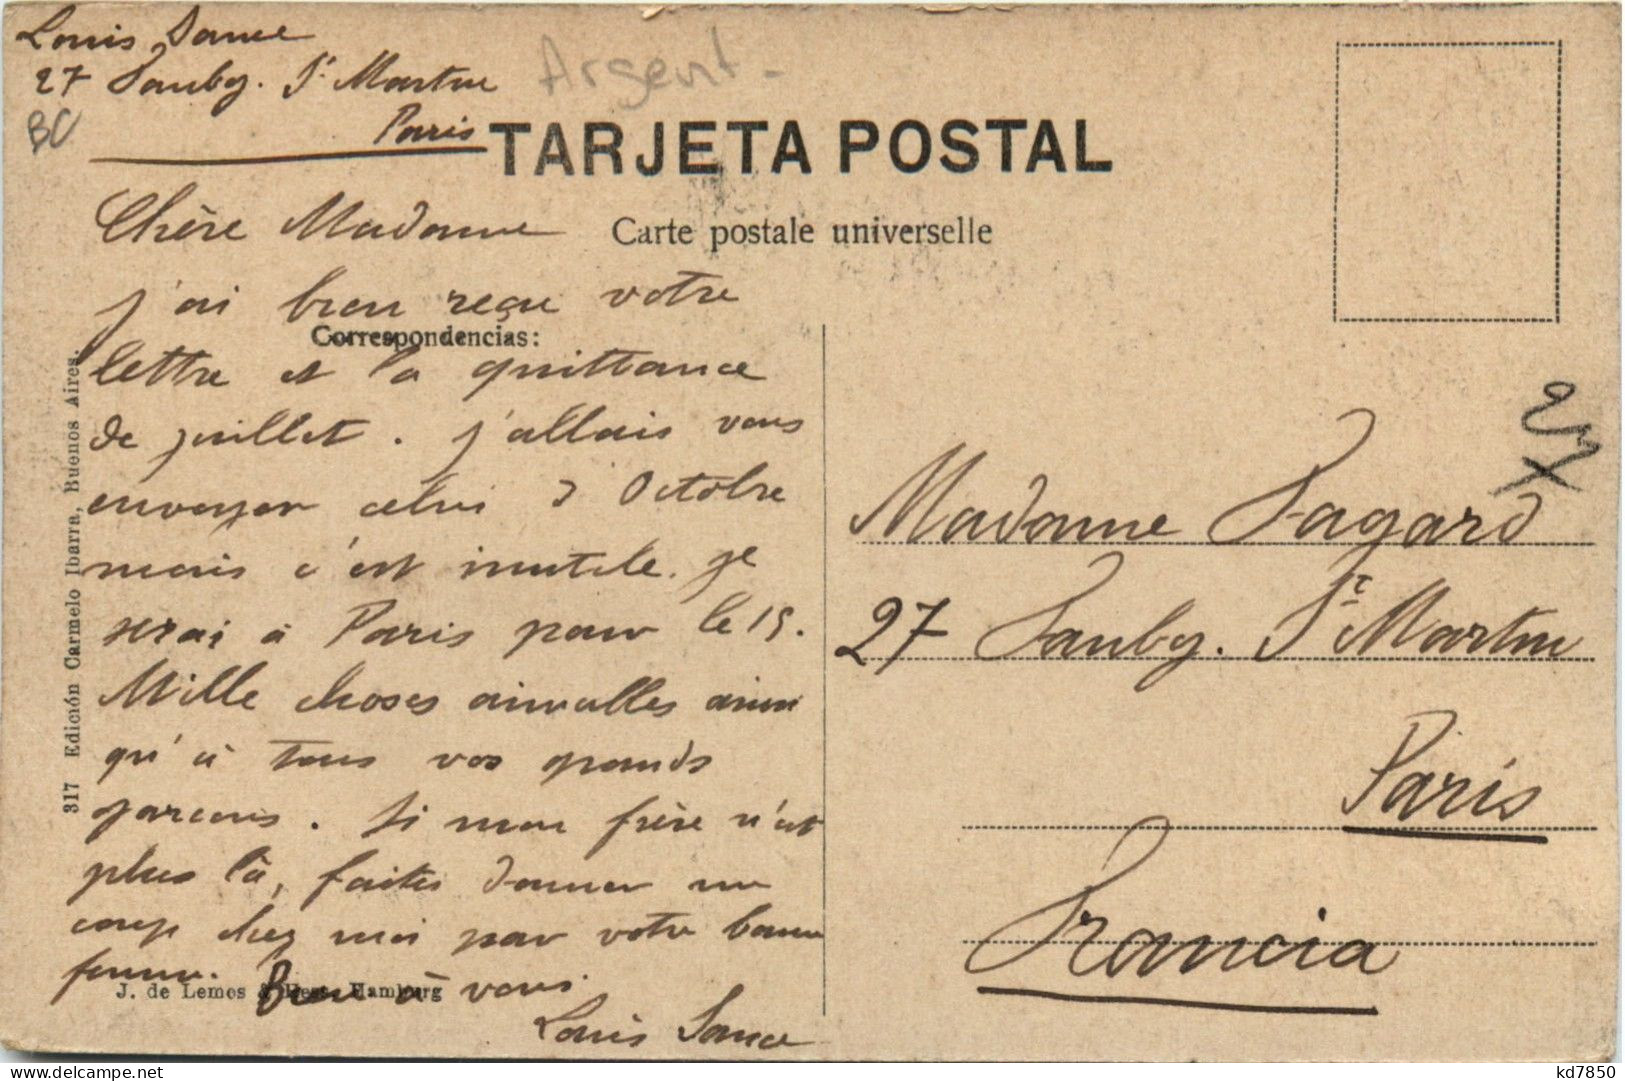 Louis Sance
27 Faubg. St Martin
Paris
Argent -
BC
TARJETA POSTAL
Carte postale universelle
Correspondencias:
Chère Madame
j'ai bien reçu votre
lettre et la quittance
de juillet. j'allais vous
envoyer celui d'Octobre
mais c'est inutile. je
serai à Paris pour le 15.
Mille choses aimables ainsi
qu'à tous vos grands
garçons. Si mon frère n'est
plus là, faites donner un
coup chez moi par votre bonne
femme. Bien à vous
Louis Sance
317 Edición Carmelo Ibarra, Buenos Aires.
J. de Lemos & Hamburg
Madame Fagard
27 Faubg. St Martin
Paris
Francia
kd7850